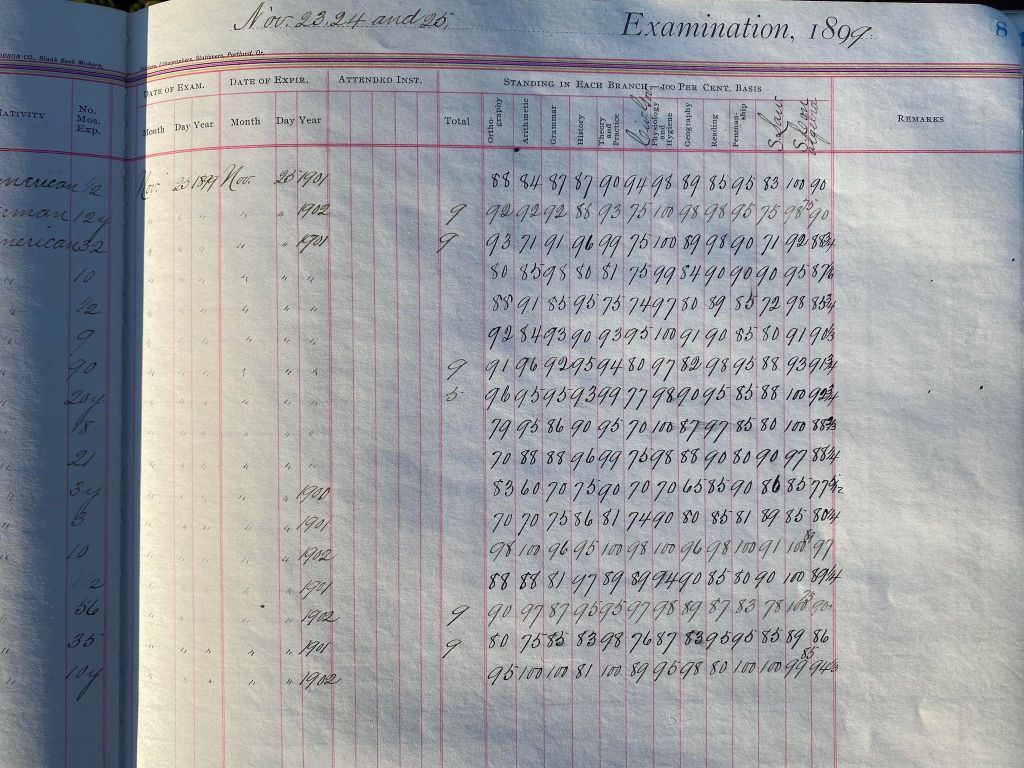 Nov. 23, 24 and 25, Examination, 1899. 8
DRON CO., Blank Book Makers,
Lithographers, Stationers, Portland, Or.
NATIVITY No. Mos. Exp. DATE OF EXAM. DATE OF EXPIR. ATTENDED INST. STANDING IN EACH BRANCH—100 PER CENT. BASIS
Month Day Year Month Day Year Total Orthography Arithmetic Grammar History Theory and Practice Physiology and Hygiene Geography Reading Penmanship S. Law REMARKS
merican 1/2 Nov. 25 1899 Nov. 25 1901 88 84 87 87 90 94 98 89 85 95 83 100 90
rman 12y " " " " " 1902 9 92 92 92 88 93 75 100 98 98 95 75 98 75 90
merican 32 " " " " " 1901 9 93 71 91 96 99 75 100 89 98 90 71 92 88 3/4
" 10 " " " " " " 80 85 98 80 81 75 99 84 90 90 90 95 87 1/6
" 1/2 " " " " " " 88 91 85 95 75 74 97 80 89 85 72 98 85 3/4
" 9 " " " " " " 92 84 93 90 93 95 100 91 90 85 80 91 90 1/3
" 90 " " " " " " 9 91 96 92 95 94 80 97 82 98 95 88 93 91 3/4
" 20y " " " " " " 5 96 95 95 93 99 77 98 90 95 85 88 100 92 3/4
" 18 " " " " " " 79 95 86 90 95 70 100 87 97 85 80 100 88 2/3
" 21 " " " " " " 70 88 88 96 99 75 98 88 90 80 90 97 88 1/4
" 3y " " " " " 1900 83 60 70 75 90 70 70 65 85 90 86 85 77 5/12
" 3 " " " " " 1901 70 70 75 86 81 74 90 80 85 81 89 85 80 1/4
" 10 " " " " " 1902 98 100 96 95 100 98 100 96 98 100 91 100 89 97
" 1/2 " " " " " 1901 88 88 81 97 89 89 94 90 85 80 90 100 89 1/4
" 56 " " " " " 1902 9 90 97 87 95 95 97 98 89 87 83 78 100 75 90+
" 35 " " " " " 1901 9 80 75 85 83 98 76 87 83 95 95 85 89 86
" 10y " " " " " 1902 95 100 100 81 100 89 95 98 80 100 100 99 85 94 1/3